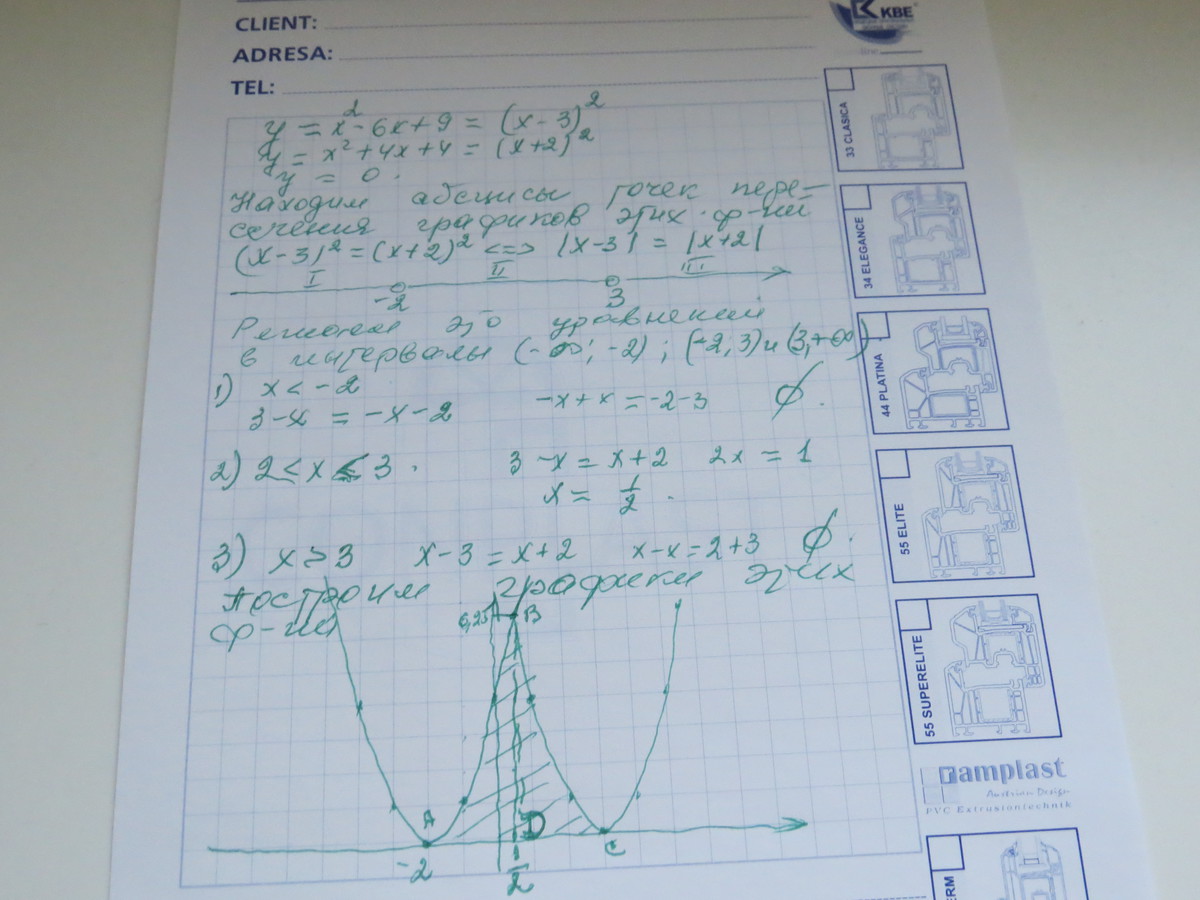 CLIENT:
ADRESA:
TEL:
KBE
y = x² - 6x + 9 = (x - 3)²
y = x² + 4x + 4 = (x+2)²
y = 0.
Находим абсцисы точек пере-
сечения графиков этих ф-ий
(x - 3)² = (x+2)² <=> |x-3| = |x+2|
I II III
-2 3
Решим это уравнений
в интервалы (-∞; -2); (-2; 3) и (3, +∞)
1) x < -2
3-x = -x-2 -x+x = -2-3 ∅.
2) 2 < x < 3. 3-x = x+2 2x = 1
x = 1/2.
3) x > 3 x-3 = x+2 x-x = 2+3 ∅.
Построим графики этих
ф-ий
6,25 B
A D C
-2 1/2
33 CLASICA
34 ELEGANCE
44 PLATINA
55 ELITE
55 SUPERELITE
ramplast
Austrian Design
PVC Extrusiontechnik
ERM